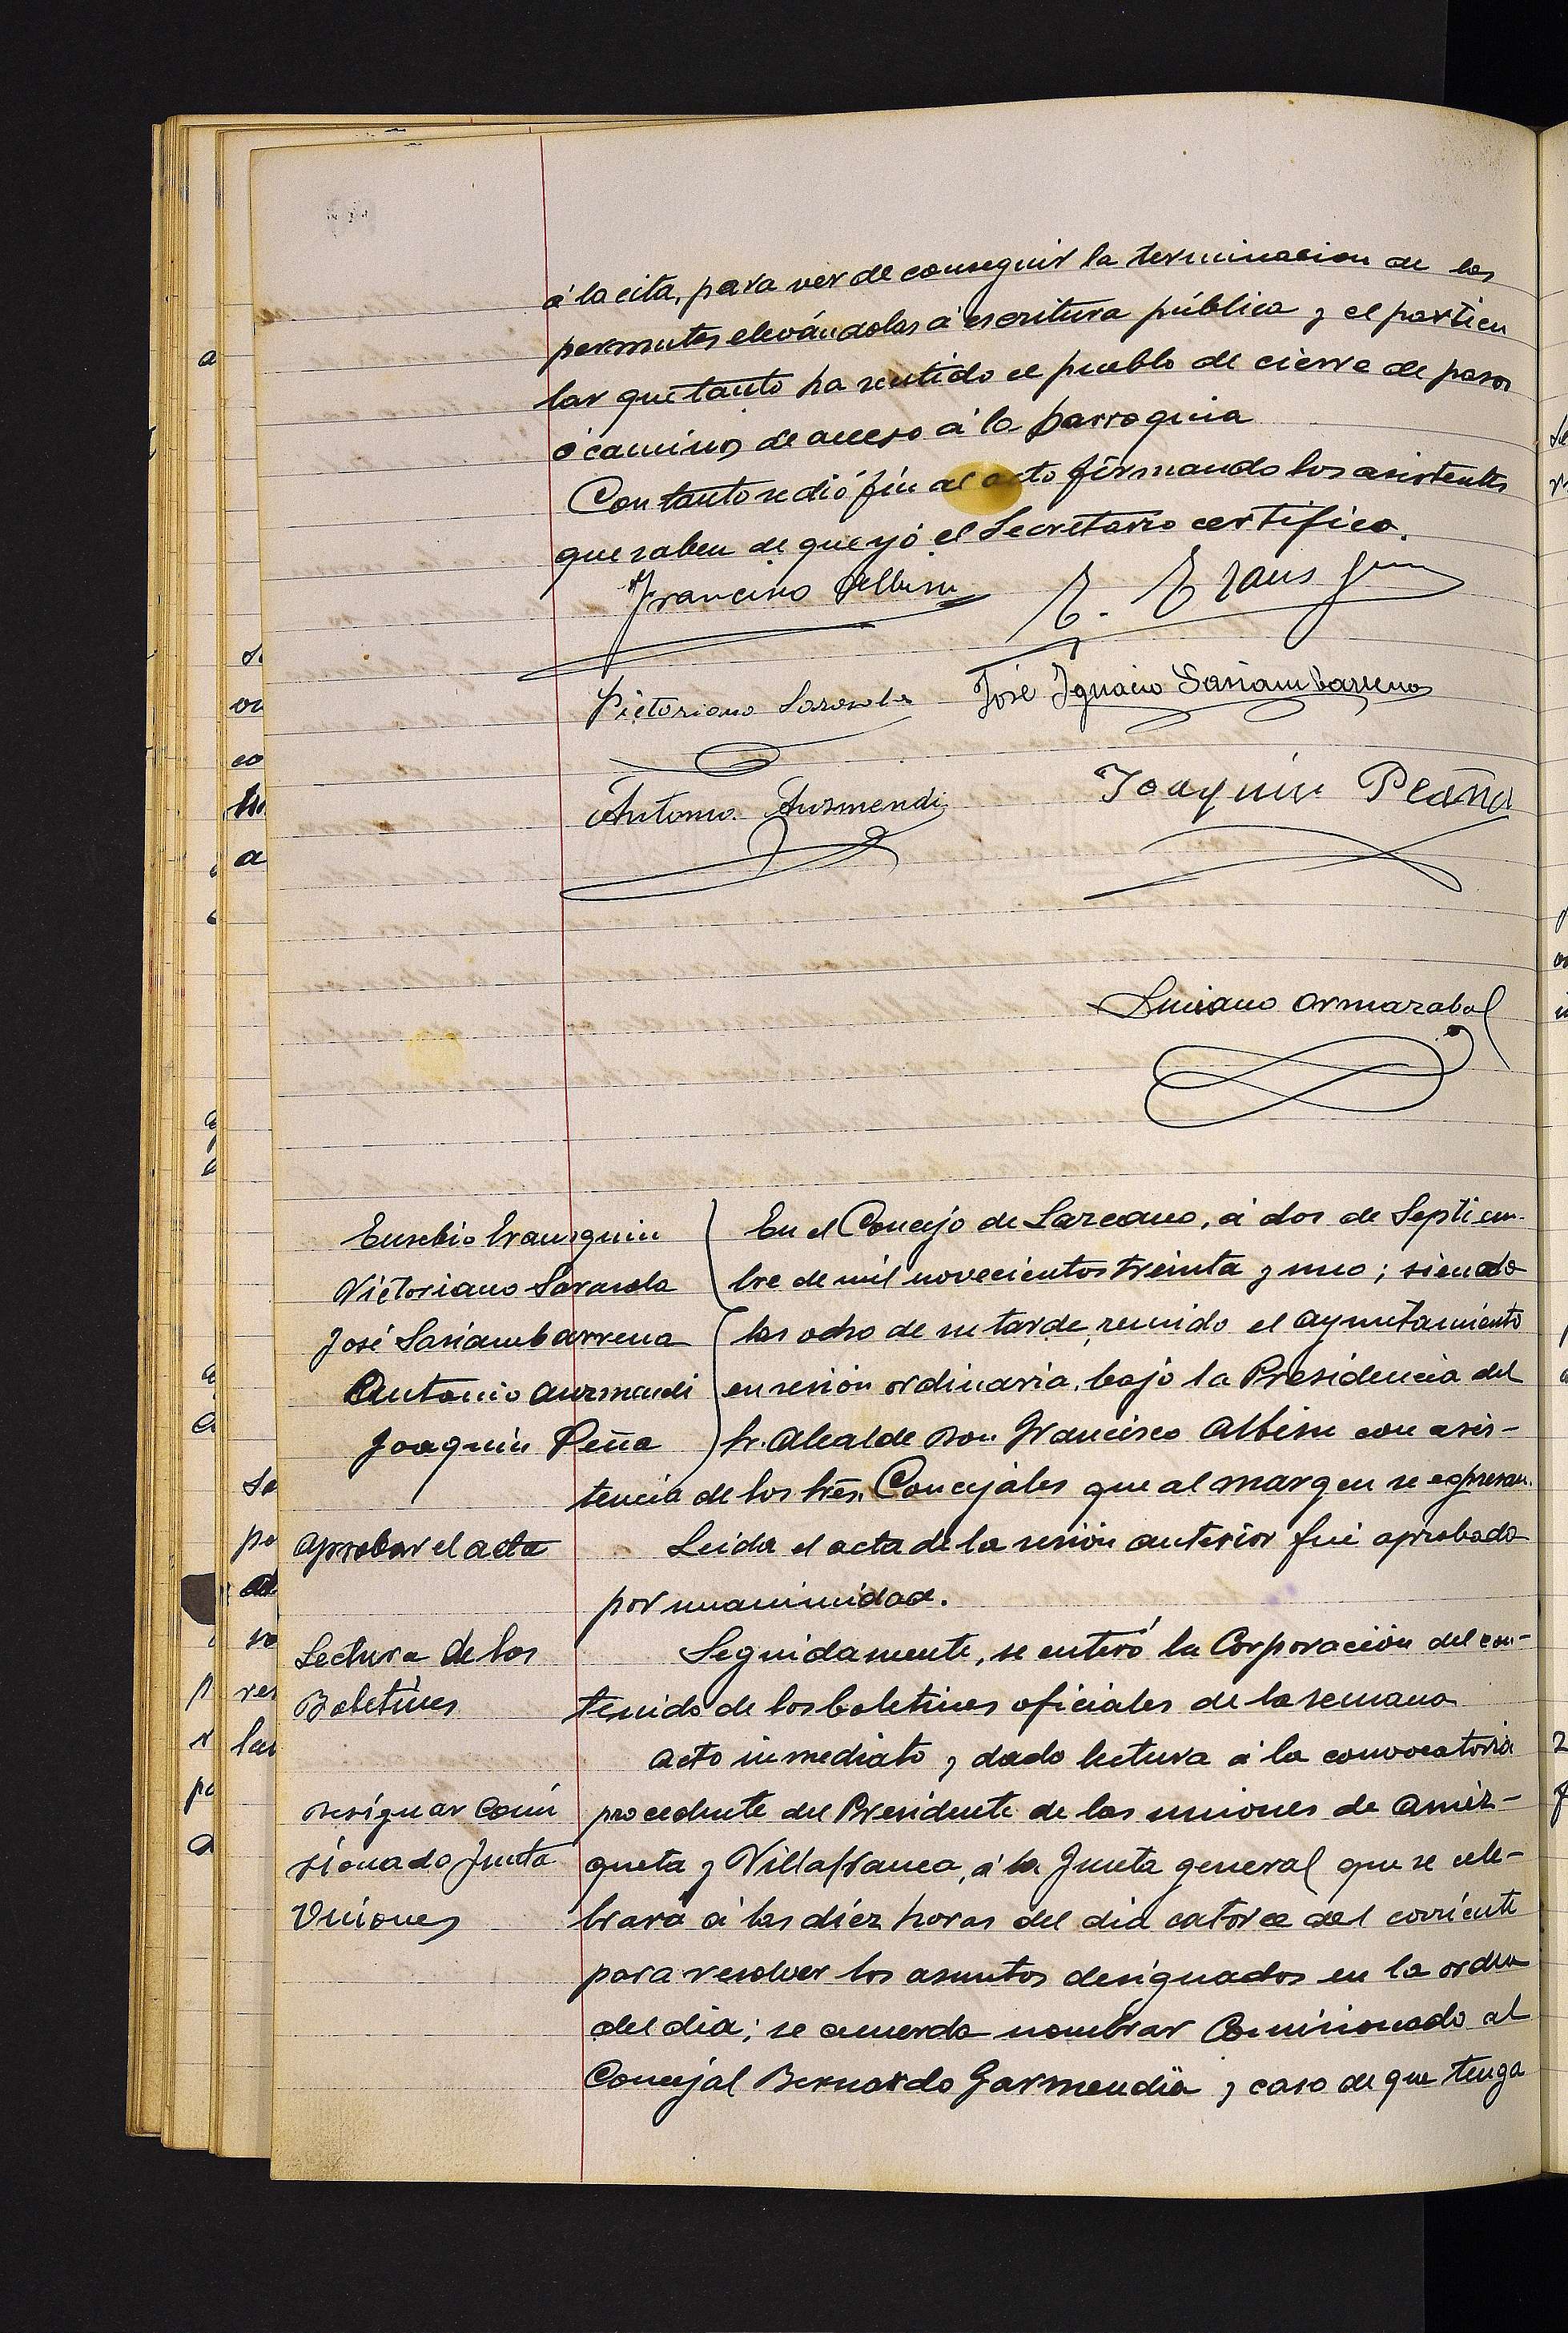 á la cita, para ver de conseguir la terminacion de las
permutas elevándolas á escritura pública y el particu
lar que tanto ha sentido el pueblo de cierre de pasos
ó caminos de acceso á la parroquia
Con tanto se dió fin al acto firmando los asistentes
que saben de que yo el Secretario certifico.
Francisco Albisu
Victoriano Sarasola José Ignacio Sasiambarrena
Antonio Auzmendi Joaquin Peña
Luciano Ormazabal
Eusebio Irausquin
Victoriano Sarasola
José Sasiambarrena
Antonio Auzmendi
Joaquin Peña
En el Concejo de Lazcano, á dos de Septiem-
bre de mil novecientos treinta y uno; siendo
las ocho de su tarde, reunido el Ayuntamiento
en sesion ordinaria, bajo la Presidencia del
Sr. Alcalde Don Francisco Albisu con asis-
tencia de los Sres. Concejales que al margen se expresan.
Aprobar el acta
Leida el acta de la sesión anterior fué aprobada
por unanimidad.
Lectura de los
Boletines
Seguidamente, se enteró la Corporación del con-
tenido de los boletines oficiales de la semana
Acto inmediato y dado lectura á la convocatoria
Designar Comi
sionado Junta
Uniones
procedente del Presidente de las uniones de Améz-
queta y Villafranca, á la Junta general que se cele-
brará á las diéz horas del dia catorce del corriente
para resolver los asuntos designados en la orden
del dia; se acuerda nombrar Comisionado al
Concejal Bernardo Garmendia y caso de que tenga